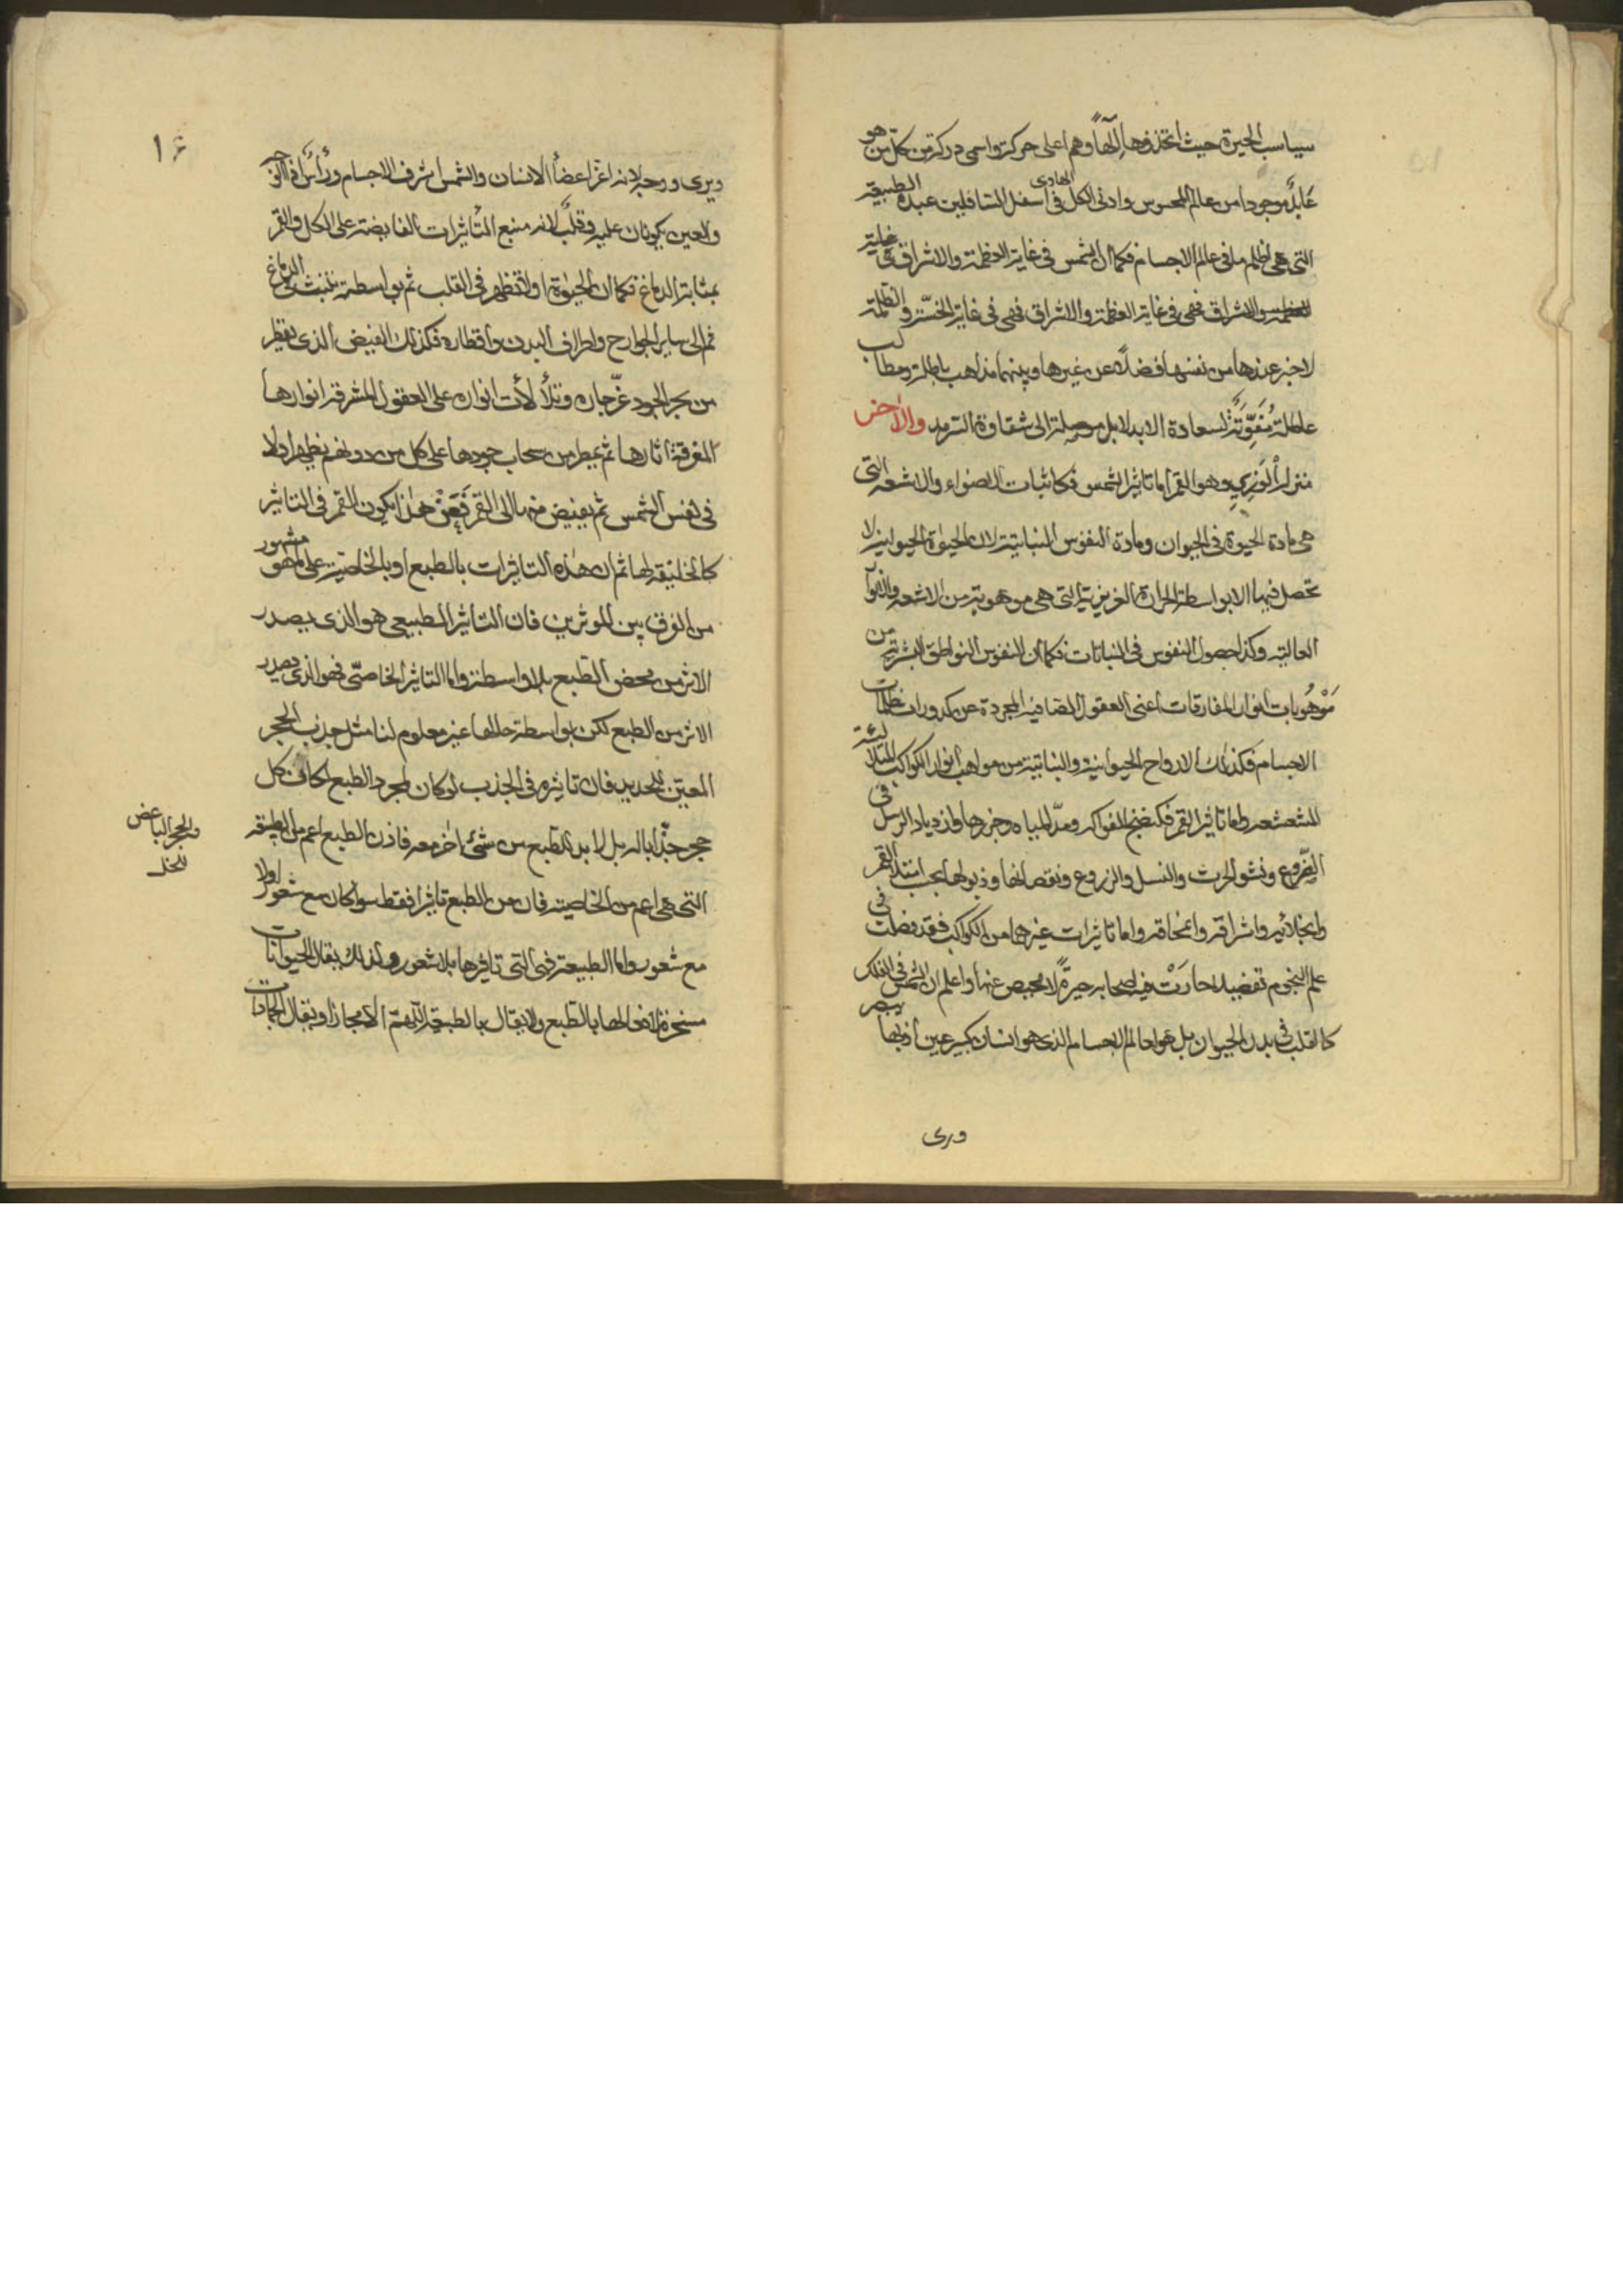 سباسب الحيرة حيث اتخذوها إلٰهاً وهم اعلى حركة واسمى دركة من كلّ من هو
عابد موجودا من عالم المحسوس وادنى الكل فى اسفل السافلين عبدة الطبيعة
الهادى
التى هى اظلم ما فى عالم الاجسام فكما ان الشمس فى غاية العظمة والاشراق
العظمة والاشراق فهى فى غاية العظمة والاشراق فهى فى غاية الخسّة والظلمة
لا خبر عندها من نفسها فضلاً عن غيرها وبينهما مذاهب باطلة ومطالب
عاطلة مُفَوِّتَة لسعادة الابد لا بل موصلة الى شقاوة السرمد والآخر
منزلة الوزير وهو القمر اما تاثير الشمس فكاثبات الاضواء والاشعة التى
هى مادة الحيوة فى الحيوان ومادة النفوس النباتية لان الحيوة الحيوانية لا
تحصل فيها الا بواسطة الحرارة الغريزية التى هى موهوبة من الاشعة
العالية وكذا حصول النفوس فى النباتات فكما ان النفوس النواطق البشرية من
مَوْهُوبات انوار المفارقات اعنى العقول الصافية المجردة عن كدورات ظلمات
الاجسام فكذلك الارواح الحيوانية والنباتية من مواهب انوار الكواكب المتلألئة
المشعشعة واما تاثير القمر فكنضج الفواكه ومدّ المياه وجزرها وازدياد فى
الضروع ونشو الحرث والنسل والزروع ونقصانها وذبولها بحسب امتلاء القمر
وانجلائه واشراقه وانمحاقه واما تاثيرات غيرهما من الكواكب فقد فصلت فى
علم النجوم تفصيلا حارَتْ فيه اصحابه حيرةً لا محيص عنها واعلم ان الشمس فى الفلك
كالقلب فى بدن الحيوان بل هو لعالم الاجسام الذى هو انسان كبير عين اذ بها يبصر
ويرى
١٦
ويرى ووجه لانه اعزّ اعضاء الانسان والشمس اشرف الاجسام ورأس اذ الوجه
والعين يكونان عليه وقلب لانه منبع التأثيرات الفايضة على الكل والقمر
بمثابة الدماغ فكما ان الحيوة اولا تظهر فى القلب ثم بواسطته تنبث فى الدماغ
ثم الى ساير الجوارح واطراف البدن واقطاره فكذلك الفيض الذى يفيض
من بحر الجود وتلألأت انواره على العقول المشرقة انوارها
المغرقة اثارها ثم يمطر من سحاب جودها على كل من دونهم يظهر اولا
فى نفس الشمس ثم يفيض منها الى القمر فَعَنْ هذا يكون القمر فى التاثير
كالخليفة لها ثم ان هذه التاثيرات بالطبع او بالخاصية على ما هو مشهور
من الفرق بين الموثرين فان التاثير الطبيعى هو الذى يصدر
الاثر من محض الطبع بلا واسطة واما التاثير الخاصّى فهو الذى يصدر
الاثر من الطبع لكن بواسطة حالها غير معلوم لنا مثل جذب الحجر
المعين للحديد فان تاثيره فى الجذب لو كان لمجرد الطبع لكان كل
حجر جذّابا له بل لا بد للطبع من شئ اخر معه فاذن الطبع اعم من الطبيعة
والحجر الباغض
للخل
التى هى اعم من الخاصية فان من الطبع تاثيرا فقط سواء كان مع شعور اولا
مع شعور واما الطبيعة فهى التى تاثيرها بلا شعور ولذلك يقال الحيوانات
مسخرة لافعالها بالطبع ولا يقال بالطبيعة اللهم الا مجازا ويقال الجمادات